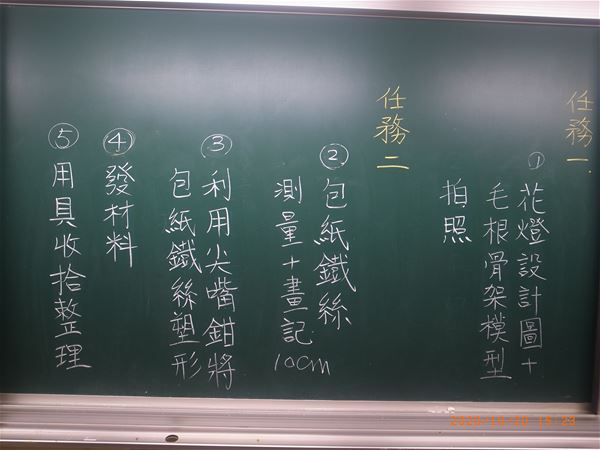 任務一
①花燈設計圖+
毛根骨架模型
拍照
任務二
②包紙鐵絲
測量+畫記
10cm
③利用尖嘴鉗將
包紙鐵絲塑形
④發材料
⑤用具收拾整理